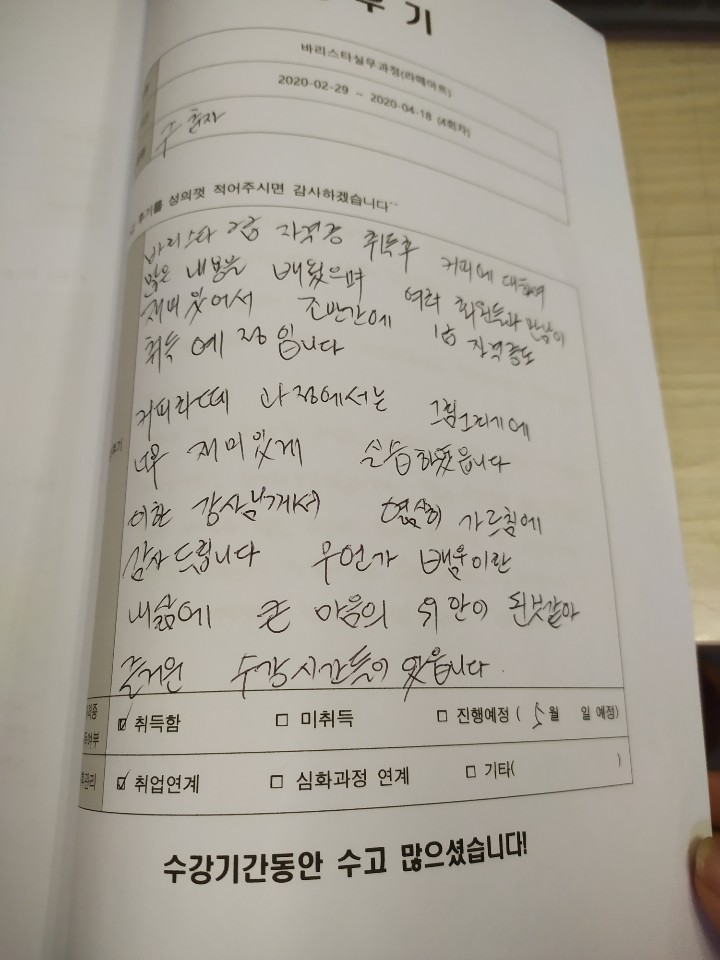 후기
바리스타실무과정(라떼아트)
2020-02-29 ~ 2020-04-18 (4회차)
후기를 성의껏 적어주시면 감사하겠습니다^^
바리스타 2급 자격증 취득후 커피에 대하여
많은 내용을 배웠으며 여러 회원들과 만남이
재미있어서 조만간에 1급 자격증도
취득 예정입니다
커피라떼 과정에서는 그림그리기에
너무 재미있게 실습하였읍니다
또한 강사님께서 열심히 가르침에
감사드립니다 무언가 배움이란
내삶에 큰 마음의 위안이 된것같아
즐거운 수강시간들이 였읍니다.
☑ 취득함 □ 미취득 □ 진행예정 ( 5월 일 예정)
☑ 취업연계 □ 심화과정 연계 □ 기타( )
수강기간동안 수고 많으셨습니다!